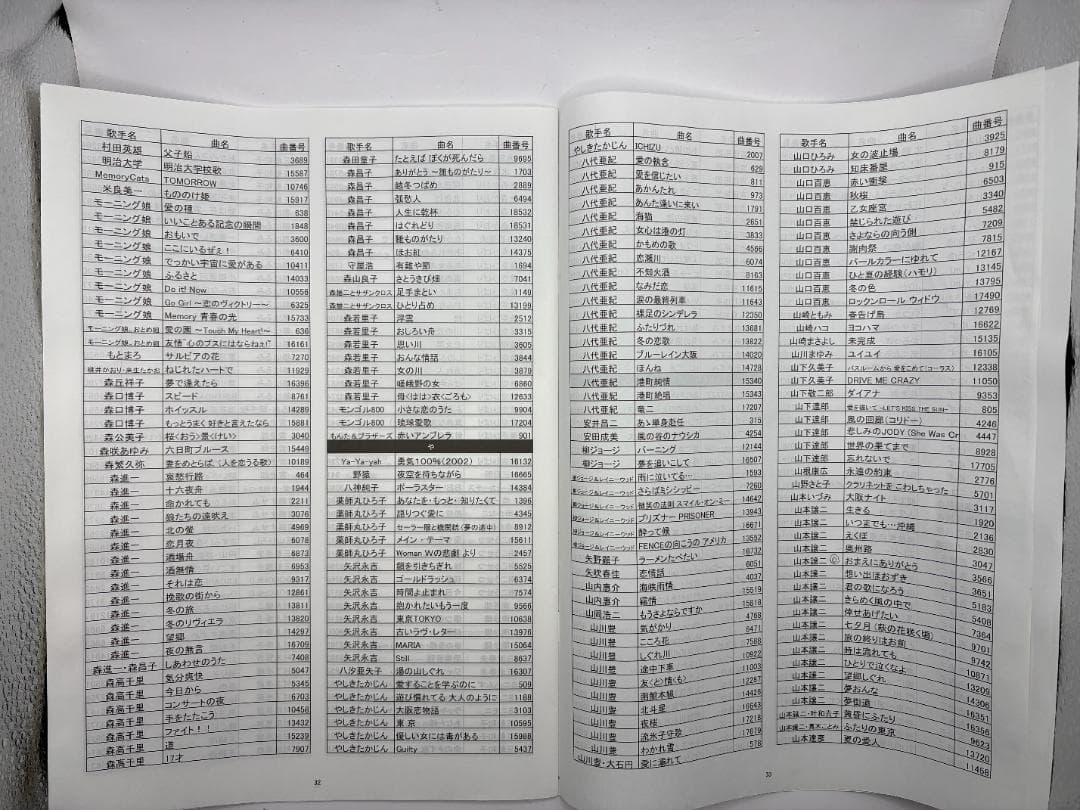 歌手名 曲名 曲番号
村田英雄 父子船 3689
明治大学 明治大学校歌 15587
MemoryCats TOMORROW 10746
米良美一 もののけ姫 15917
モーニング娘 愛の種 638
モーニング娘 いいことある記念の瞬間 1848
モーニング娘 おもいで 3600
モーニング娘 ここにいるぜぇ！ 6410
モーニング娘 でっかい宇宙に愛がある 10411
モーニング娘 ふるさと 14033
モーニング娘 Do it! Now 10556
モーニング娘 Go Girl ～恋のヴィクトリー～ 6325
モーニング娘 Memory 青春の光 15733
モーニング娘。おとめ組 愛の園 ～Touch My Heart!～ 636
モーニング娘。おとめ組 友情~心のブスにはならねぇ!~ 16161
もとまろ サルビアの花 7270
桃井かおり・来生たかお ねじれたハートで 11929
森丘祥子 夢で逢えたら 16396
森口博子 スピード 8761
森口博子 ホイッスル 14289
森口博子 もっとうまく好きと言えたなら 15881
森公美子 桜<おう>景<けい> 3040
森咲あゆみ 六日町ブルース 15449
森繁久弥 妻をめとらば (人を恋うる歌) 10189
森進一 哀愁行路 464
森進一 十六夜舟 1944
森進一 命かれても 2211
森進一 狼たちの遠吠え 3076
森進一 北の螢 4969
森進一 恋月夜 6078
森進一 酒場舟 6873
森進一 酒無情 6953
森進一 それは恋 9317
森進一 挽歌の街から 12861
森進一 冬の旅 13811
森進一 冬のリヴィエラ 13820
森進一 望郷 14297
森進一 夜の無言 16709
森進一・森昌子 しあわせのうた 7408
森高千里 気分爽快 5047
森高千里 今日から 5345
森高千里 コンサートの夜 6703
森高千里 手をたたこう 10456
森高千里 ファイト！！ 13432
森高千里 道 15239
森高千里 17才 7907
歌手名 曲名 曲番号
森田童子 たとえば ぼくが死んだら 9695
森昌子 ありがとう ～雛ものがたり～ 1703
森昌子 越冬つばめ 2889
森昌子 孤愁人 6494
森昌子 人生に乾杯 18532
森昌子 はぐれどり 18531
森昌子 雛ものがたり 13240
森昌子 ほお紅 14375
守屋浩 有難や節 1694
森山良子 さとうきび畑 7041
森雄二とサザンクロス 足手まとい 1149
森雄二とサザンクロス ひとり占め 13199
森若里子 浮雲 2512
森若里子 おしろい舟 3315
森若里子 思い川 3605
森若里子 おんな情話 3844
森若里子 女の川 3879
森若里子 嵯峨野の女 6860
森若里子 母<はは>衣<ごろも> 12633
モンゴル800 小さな恋のうた 9904
モンゴル800 琉球愛歌 17204
もんた＆ブラザーズ 赤いアンブレラ 901
や
Ya-Ya-yah 勇気100%(2002) 16132
野猿 夜空を待ちながら 16665
八神純子 ポーラスター 14384
薬師丸ひろ子 あなたを・もっと・知りたくて 1396
薬師丸ひろ子 語りつぐ愛に 4345
薬師丸ひろ子 セーラー服と機関銃 (夢の途中) 8912
薬師丸ひろ子 メイン・テーマ 15611
薬師丸ひろ子 Woman Wの悲劇 より 2457
矢沢永吉 鎖を引きちぎれ 5525
矢沢永吉 ゴールドラッシュ 6374
矢沢永吉 時間よ止まれ 7574
矢沢永吉 抱かれたいもう一度 9566
矢沢永吉 東京TOKYO 10638
矢沢永吉 古いラヴ・レター 13976
矢沢永吉 MARIA 15064
矢沢永吉 Still 8637
八汐亜矢子 湯の山しぐれ 16307
やしきたかじん 愛することを学ぶのに 509
やしきたかじん 遊び慣れてる 大人のように 1188
やしきたかじん 大阪恋物語 3103
やしきたかじん 東 京 10595
やしきたかじん 優しい女には毒がある 15988
やしきたかじん Guilty 5437
32
歌手名 曲名 曲番号
やしきたかじん ICHIZU 2007
八代亜紀 愛の執念 629
八代亜紀 愛を信じたい 811
八代亜紀 あかんたれ 973
八代亜紀 あんた逢いに来い 1791
八代亜紀 海猫 2651
八代亜紀 女心は港の灯 3833
八代亜紀 かもめの歌 4566
八代亜紀 恋瀬川 6074
八代亜紀 不知火酒 8163
八代亜紀 なみだ恋 11615
八代亜紀 涙の最終列車 11643
八代亜紀 裸足のシンデレラ 12350
八代亜紀 ふたりづれ 13681
八代亜紀 冬の恋歌 13822
八代亜紀 ブルーレイン大阪 14020
八代亜紀 ほんね 14728
八代亜紀 港町純情 15340
八代亜紀 港町絶唱 15343
八代亜紀 竜二 17207
安井昌二 あゝ単身赴任 315
安田成美 風の谷のナウシカ 4254
柳ジョージ バーニング 12144
柳ジョージ 夢を追いこして 16507
柳ジョージ&レイニーウッド 雨に泣いてる… 1593
柳ジョージ&レイニーウッド さらばミシシッピー 7260
柳ジョージ&レイニーウッド 微笑の法則 スマイル・オン・ミー 14642
柳ジョージ&レイニーウッド プリズナー PRISONER 13943
柳ジョージ&レイニーウッド 酔って候 16671
柳ジョージ&レイニーウッド FENCEの向こうの アメリカ 13552
矢野顕子 ラーメンたべたい 16732
矢吹春佳 恋情話 6051
山内惠介 海峡雨情 4037
山内惠介 15519
山岡浩二 もうさよならですか 15618
山川豊 気がかり 4768
山川豊 こころ花 6471
山川豊 しぐれ川 7588
山川豊 途中下車 10922
山川豊 友<とも>情<も> 11003
山川豊 函館本線 12287
山川豊 北斗星 14426
山川豊 夜桜 16643
山川豊 流氷子守歌 17218
山川豊 わかれ雪 17679
山川豊・大石円 愛に溺れて 578
歌手名 曲名 曲番号
山口ひろみ 女の波止場 3925
山口ひろみ 知床番屋 8179
山口百恵 赤い衝撃 915
山口百恵 秋桜 6503
山口百恵 乙女座宮 3340
山口百恵 禁じられた遊び 5482
山口百恵 さよならの向う側 7209
山口百恵 謝肉祭 7815
山口百恵 パールカラーにゆれて 12167
山口百恵 ひと夏の経験(ハモリ) 13145
山口百恵 冬の色 13795
山口百恵 ロックンロール ウィドウ 17490
山崎ともみ 春告げ鳥 12769
山崎ハコ ヨコハマ 16622
山崎まさよし 未完成 15135
山川まゆみ ユイユイ 16105
山下久美子 バスルームから 愛をこめて(コーラス) 12338
山下久美子 DRIVE ME CRAZY 11050
山下敬二郎 ダイアナ 9353
山下達郎 愛を描いて ~LET'S KISS THE SUN~ 805
山下達郎 風の回廊 (コリドー) 4246
山下達郎 悲しみのJODY (She Was Cr 4447
山下達郎 世界の果てまで 8928
山下達郎 忘れないで 17705
山根康広 永遠の約束 2776
山野さと子 クラリネットを こわしちゃった 5701
山本いづみ 大阪ナイト 3117
山本譲二 生きる 1920
山本譲二 いつまでも…沖縄 2136
山本譲二 えくぼ 2830
山本譲二 奥州路 3047
山本譲二 おまえにありがとう 3566
山本譲二 想い出ほおずき 3651
山本譲二 君の歌になろう 5183
山本譲二 きらめく風の中で 5408
山本譲二 倖せあげたい 7364
山本譲二 七夕月 (萩の花咲く頃) 9701
山本譲二 旅の終りはお前 9742
山本譲二 時は流れても 10871
山本譲二 ひとりで泣くなよ 13209
山本譲二 望郷しぐれ 14306
山本譲二 夢おんな 16351
山本譲二 夢街道 16356
山本譲二・叶和貴子 黄昏にふたり 9623
山本譲二・真木ことみ ふたりの東京 13720
山本達彦 夏の愛人 11458
33